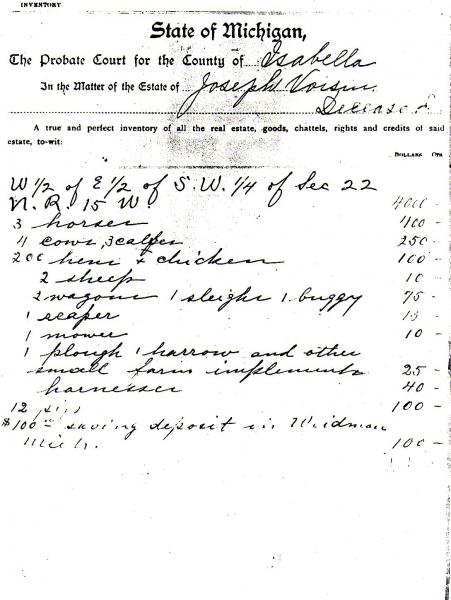 INVENTORY
State of Michigan,
The Probate Court for the County of Isabella
In the Matter of the Estate of Joseph Voisin
Deceased
A true and perfect inventory of all the real estate, goods, chattels, rights and credits of said
estate, to-wit:
DOLLARS CTS
W 1/2 of E 1/2 of S.W. 1/4 of Sec 22
N. R. 15 W 4000 -
3 horses 400 -
4 cows, 3 calfes 250 -
200 hens & chicken 100 -
2 sheep 10 -
2 wagons 1 sleighs 1 buggy 75 -
1 reaper 15 -
1 mower 10 -
1 plough 1 harrow and other
small farm implements 25 -
harnesses 40 -
12 100 -
$100 saving deposit in Weidman
Mich. 100 -